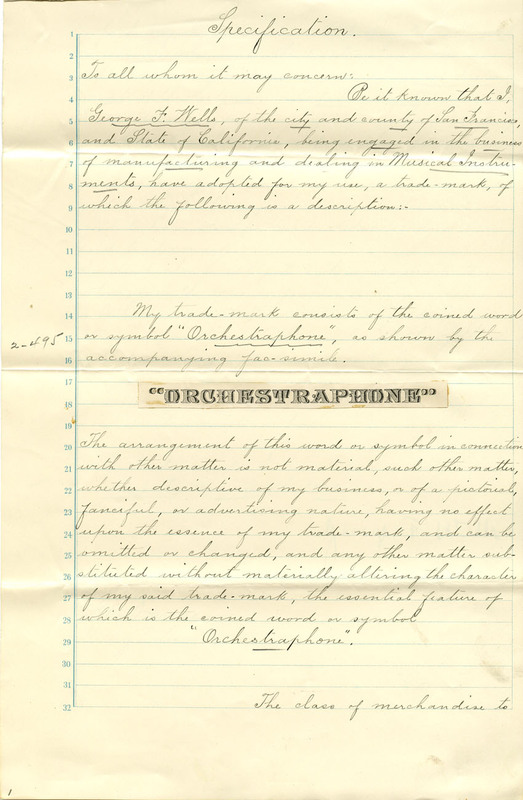 Specification.
1
2
3 To all whom it may concern:
4 Be it known that I,
5 George F. Wells, of the city and county of San Francisco,
6 and State of California, being engaged in the business
7 of manufacturing and dealing in Musical Instru-
8 ments, have adopted for my use, a trade-mark, of
9 which the following is a description:-
10
11
12
13
14 My trade-mark consists of the coined word
2-495
15 or symbol "Orchestraphone", as shown by the
16 accompanying fac-simile.
17
"ORCHESTRAPHONE"
18
19
20 The arrangement of this word or symbol in connection
21 with other matter is not material, such other matter,
22 whether descriptive of my business, or of a pictorial,
23 fanciful, or advertising nature, having no effect
24 upon the essence of my trade-mark, and can be
25 omitted or changed, and any other matter sub-
26 stituted without materially altering the character
27 of my said trade-mark, the essential feature of
28 which is the coined word or symbol
29 "Orchestraphone".
30
31
32 The class of merchandise to
1